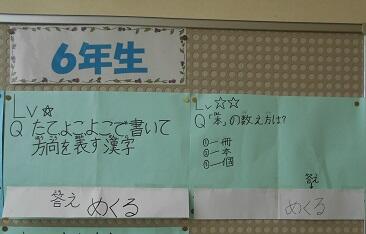 6年生
Lv☆
Q たてよこよこで書いて
方向を表す漢字
答え めくる
Lv☆☆
Q「本」の数え方は?
①一冊
②一本
③一個
答え
めくる